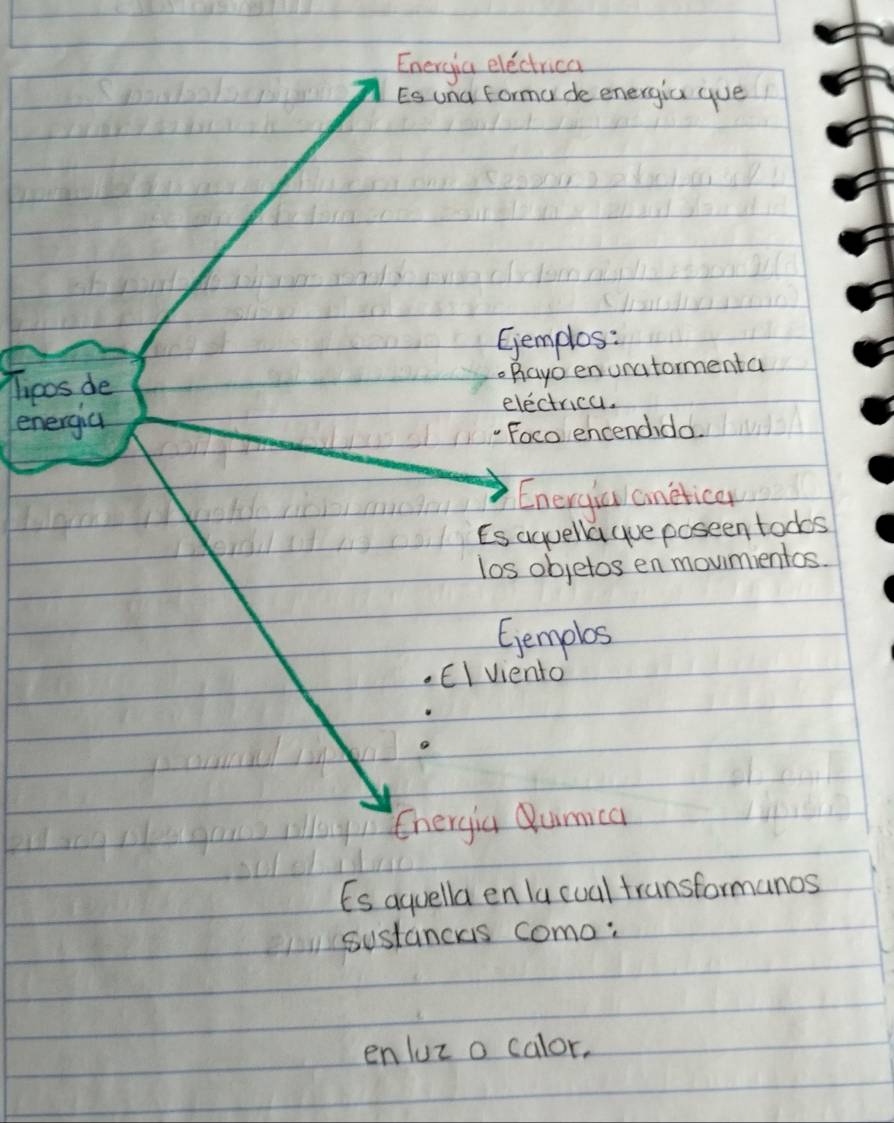 Energia eléctrica
Es una forma de energia que
Tipos de
energia
Ejemplos:
• Rayo en una tormenta
eléctrica.
• Foco encendido.
Energia cinética
Es aquella que poseen todos
los objetos en movimientos.
Ejemplos
• El viento
•
•
Energia Quimica
Es aquella en la cual transformanos
sustancias como:
en luz o calor.